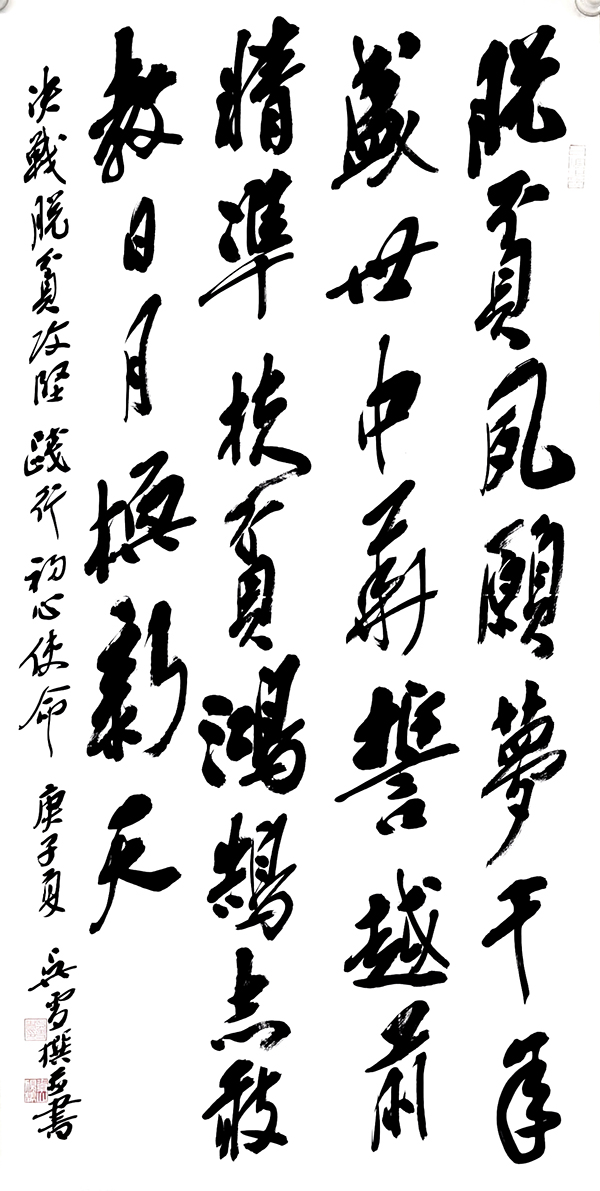 脱貧夙願夢千年
盛世中華誓越前
精準扶貧鴻鵠志敢
教日月換新天
决戰脱貧攻堅踐行初心使命 庚子夏 雪撰並書